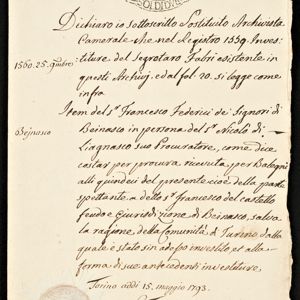 Dichiaro io sottoscritto Sostituito Archivista
Camerale che nel Registro 1559. Inves-
titure del segretaro Fabri esistente in
1560. 25. 9mbre
questi Archivj, ed al fol. 20. si legge come
infra
Item del S.r Francesco Federici de Signori di
Beinasco
Beinasco in persona del S.r Nicolò di
Liagnasco suo Procuratore, come dice
costar per procura ricevuta per Balegni
alli quindeci del presente cioè della parte
spettante a detto S.r Francesco del castello
feudo e Giurisdizione di Beinasco, salva
la ragione della Comunità di Torino dalla
quale è stato sin adesso investito, et alla
forma di sue antecedenti investiture.
Torino addì 15. maggio 1793.